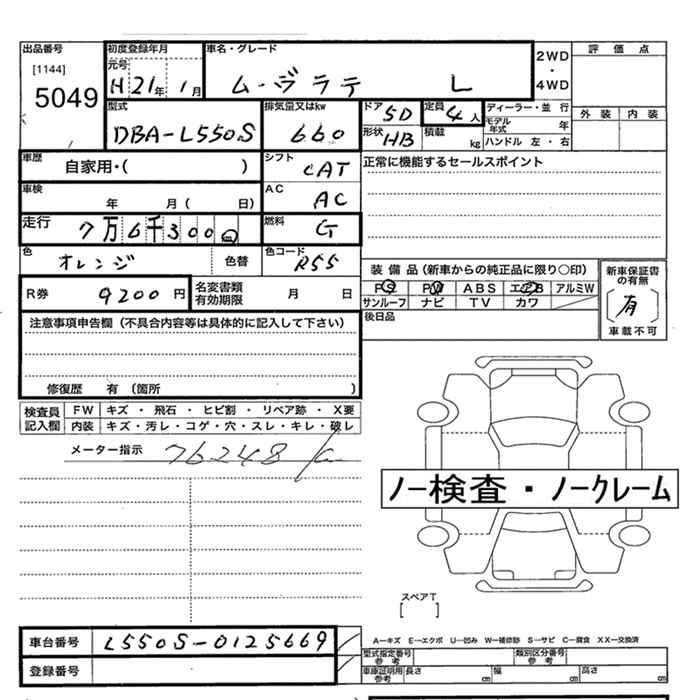 出品番号 初度登録年月 車名・グレード 2WD ・ 4WD 評価点
[1144] 元号
5049 H21年 1月 ムーヴラテ L
外装 内装
型式 排気量又はkw ドア 5D 定員 4人 ディーラー・並行
モデル年式 年
DBA-L550S 660 形状 HB 積載 kg ハンドル 左・右
車歴 自家用・( ) シフト CAT 正常に機能するセールスポイント
車検 年 月( 日) AC AC
走行 7万6千300 燃料 G
色 オレンジ 色替 色コード R55
装備品(新車からの純正品に限り○印) 新車保証書の有無
R券 9200円 名変書類有効期限 月 日 PS PW ABS エアB アルミW
サンルーフ ナビ TV カワ 有
注意事項申告欄(不具合内容等は具体的に記入して下さい) 後日品 車載不可
修復歴 有(箇所 )
検査員記入欄 FW キズ・飛石・ヒビ割・リペア跡・X要
内装 キズ・汚レ・コゲ・穴・スレ・キレ・破レ
メーター指示 76248
ノー検査・ノークレーム
スペアT
[ ]
車台番号 L550S-0125669
A―キズ E―エクボ U―凹み W―補修跡 S―サビ C―腐食 XX―交換済
型式指定番号 参考 類別区分番号 参考
登録番号 車庫証明用 参考 長さ cm 幅 cm 高さ cm